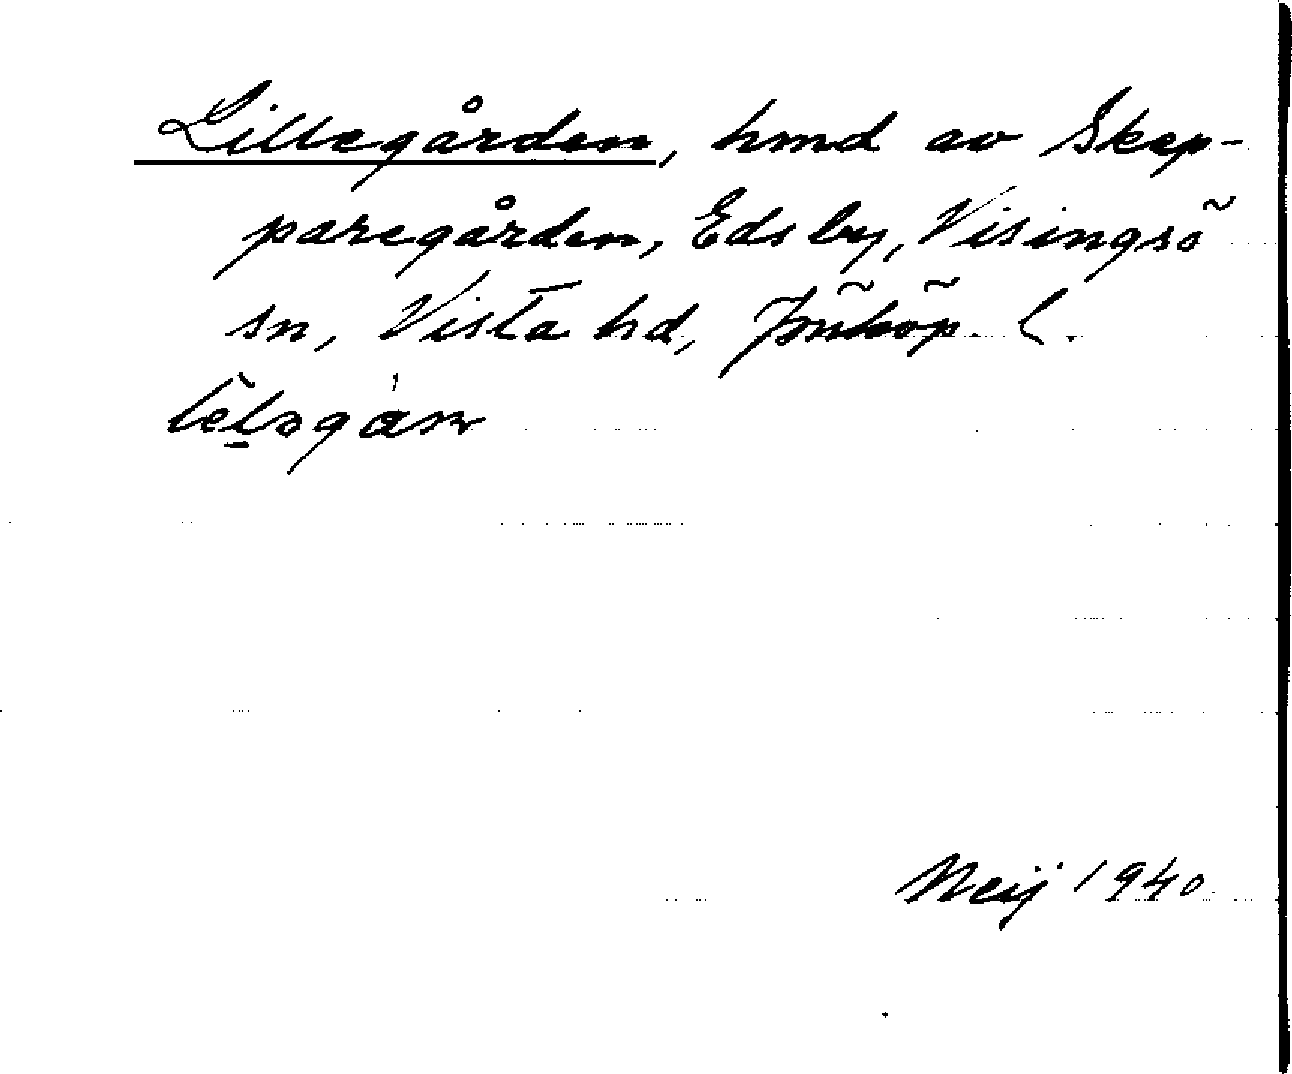 Lillegården, hmd av Skep-
paregården, Edsby, Visingsö
sn, Vista hd, Jönköp. l.
Neij 1940